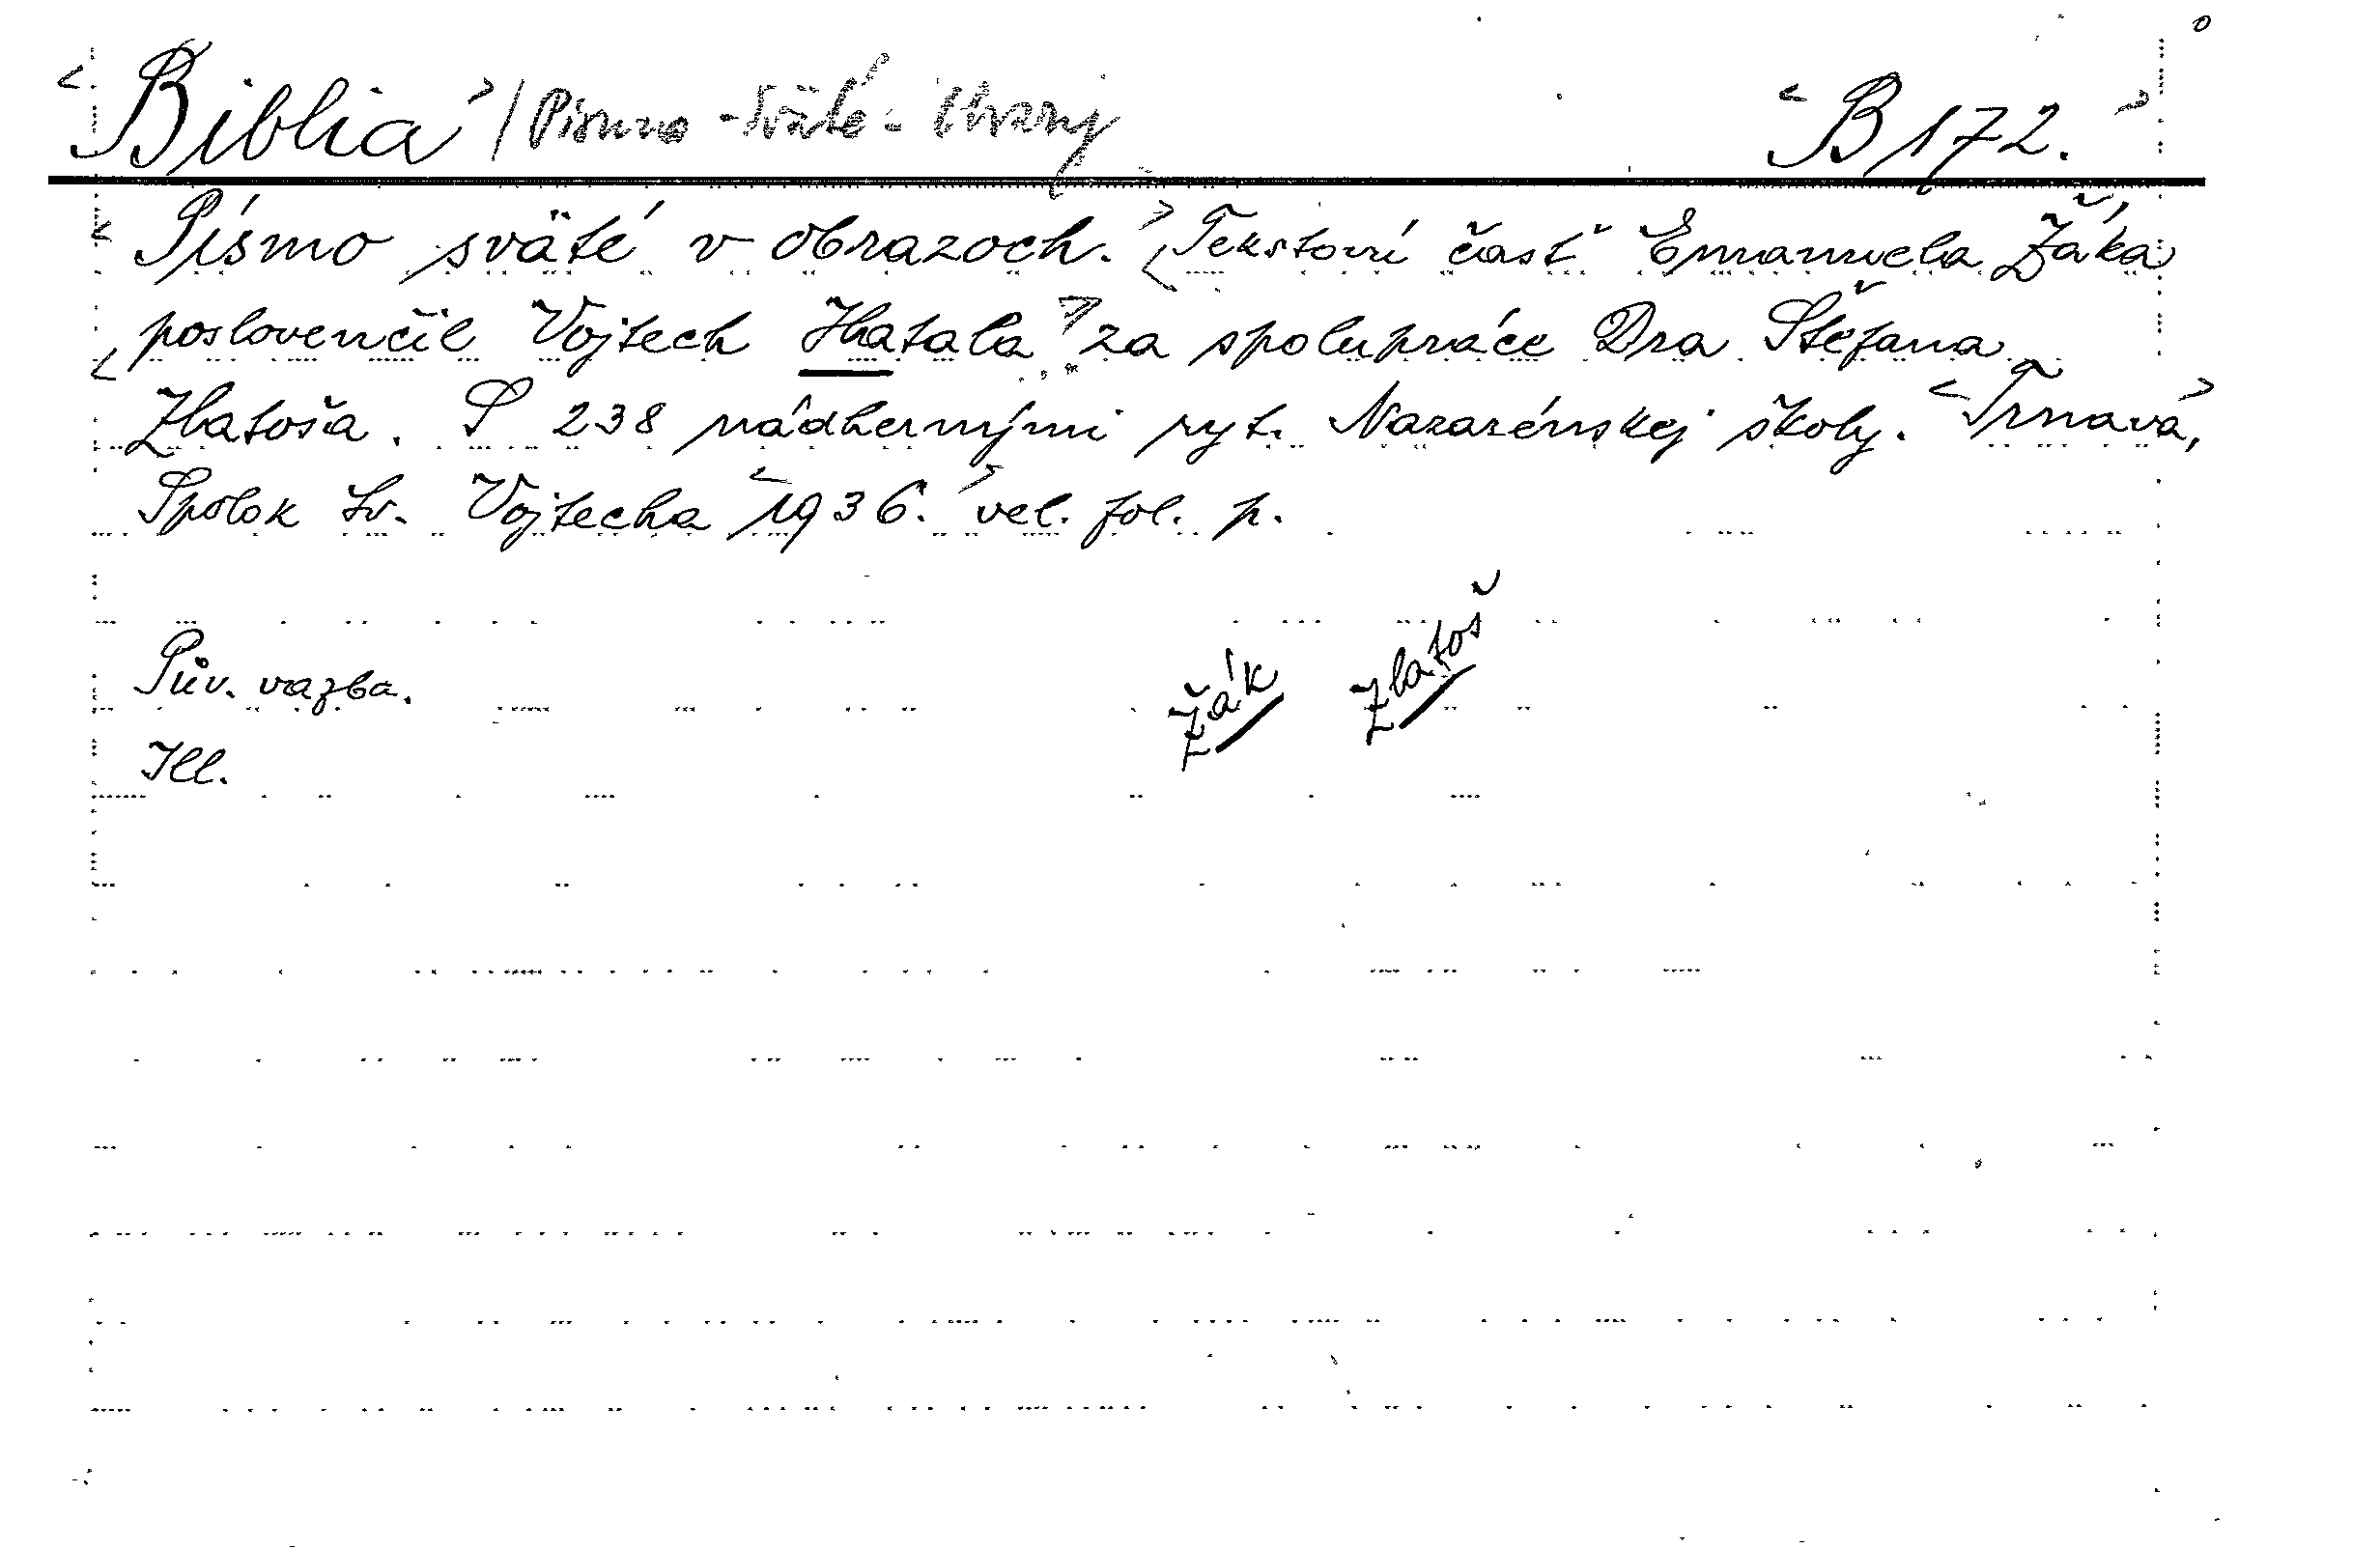 <Biblia> / Písmo-sväté-Obrazy <B 172.>
<Písmo sväté v obrazoch.> <Tekstovú časť Emanuela Žáka,
poslovenčil Vojtech Hatala> za spolupráce Dra Štefana
<Zlatoša. S 238 nádhernými ryt. Nazarénskej školy. <Trnava>,
Spolok sv. Vojtecha <1936.> vel. fol. p.
Žák Zlatoš
Pův. vazba.
Ill.